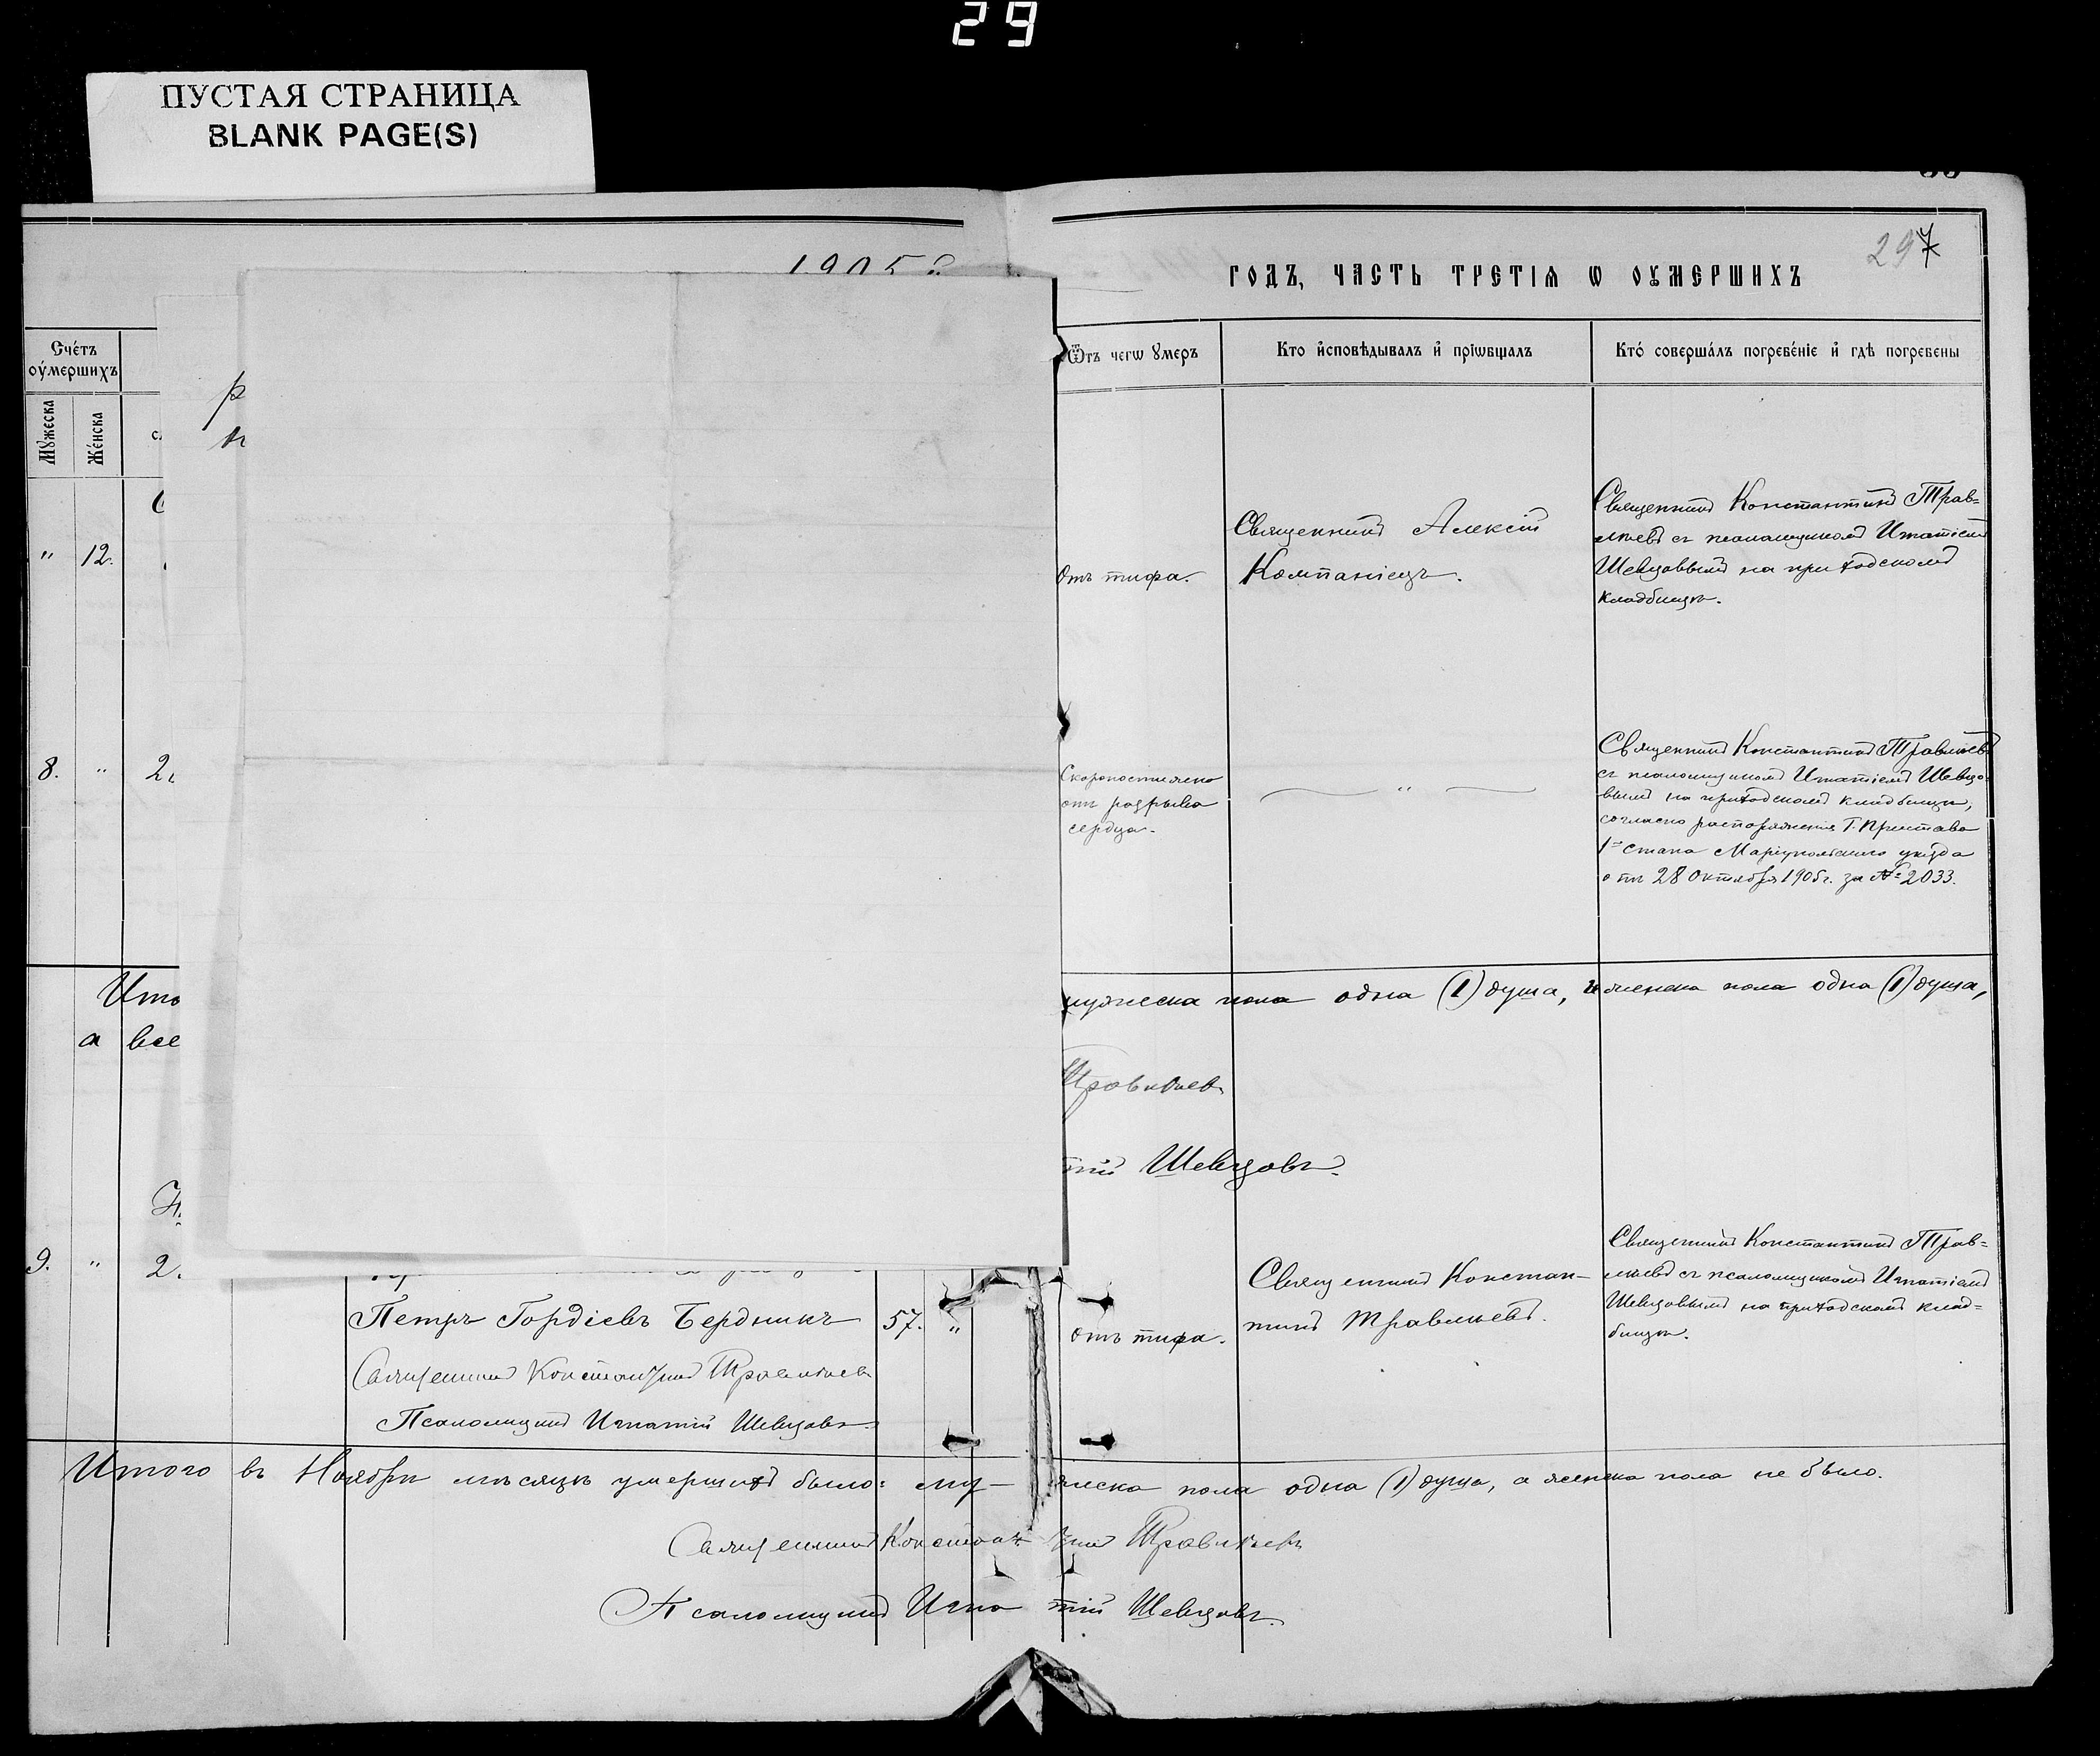 29
ПУСТАЯ СТРАНИЦА
BLANK PAGE(S)
297
1905
ГОДЪ, ЧАСТЬ ТРЕТІѦ Ѡ ОУМЕРШИХЪ
Счéтъ
оýмершихъ
Мꙋжеска
Жéнска
Ѿтъ чегѡ ꙋмеръ
Кто и҆сповѣдывалъ и҆ прїѡбщалъ
Ктó совершáлъ погребéнїе и҆ гдѣ погребены
" 12.
отъ тифа.
Священникъ Алексій
Компаніецъ.
Священникъ Константинъ Трав-
лѣевъ съ псаломщикомъ Игнатіемъ
Шевцовымъ на приходскомъ
кладбищѣ.
8. "
Скоропостижно
отъ разрыва
сердца.
"
Священникъ Константинъ Травлѣевъ
съ псаломщикомъ Игнатіемъ Шевцо-
вымъ на приходскомъ кладбищѣ,
согласно распоряженія Г. Пристава
1го стана Маріупольскаго уѣзда
отъ 28 Октября 1905г. за № 2033.
Ито
а все
мужеска пола одна (1) душа, и женска пола одна (1) душа,
Травлѣевъ
тій Шевцовъ.
9. " 2
Петръ Гордіевъ Бердникъ 57. "
отъ тифа.
Священникъ Констан-
тинъ Травлѣевъ.
Священникъ Константинъ Трав-
лѣевъ съ псаломщикомъ Игнатіемъ
Шевцовымъ на приходскомъ клад-
бищѣ.
Священникъ Константинъ Травлѣевъ
Псаломщикъ Игнатій Шевцовъ.
Итого въ Ноябрѣ мѣсяцѣ умершихъ было: му-жеска пола одна (1) душа, а женска пола не было.
Священникъ Константинъ Травлѣевъ
Псаломщикъ Игнатій Шевцовъ.